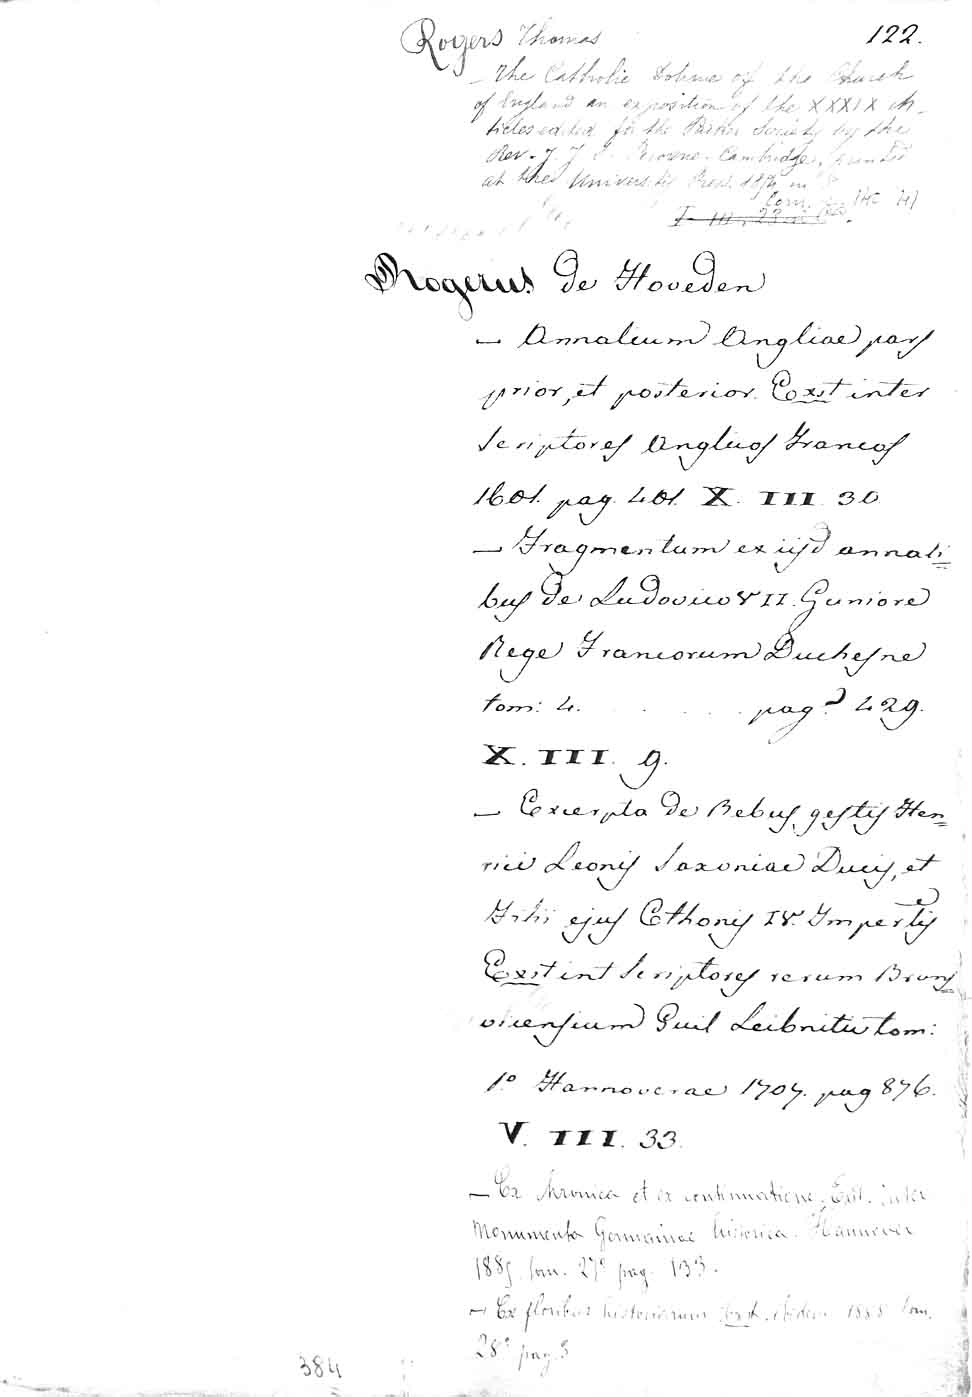 Rogers Thomas 122.
— The Catholic Doctrine of the Church
of England an exposition of the XXXIX ar-
ticles edited for the Parker Society by the
Rev. J. J. S. Perowne. Cambridge, printed
at the University Press. 18 in 8
Com.
I III. 23
Rogerius de Hoveden
— Annalium Angliae pars
prior, et posterior. Exst inter
Scriptores Anglicos Francof
1601. pag. 401. X. III. 30
— Fragmentum ex iisd annali=
bus de Ludovico VII. Guniore
Rege Francorum Duchesne
tom: 4. . . . . . pag. 429.
X. III. 9.
— Excerpta de Rebus gestis Hen=
rici Leonis Saxoniae Ducis, et
Filii ejus Othonis IV. Impertis
Exst int Scriptores rerum Bruns
vicensium Guil Leibnitii tom:
1.º Hannoverae 1707. pag 876.
V. III. 33.
— Ex chronica et ex continuatione. Exst. inter
Monumenta Germaniae historica. Hannover
1885. tom. 27º pag. 133.
— Ex floribus historiarum Exst. ibidem 1888 tom.
28º pag. 3
384